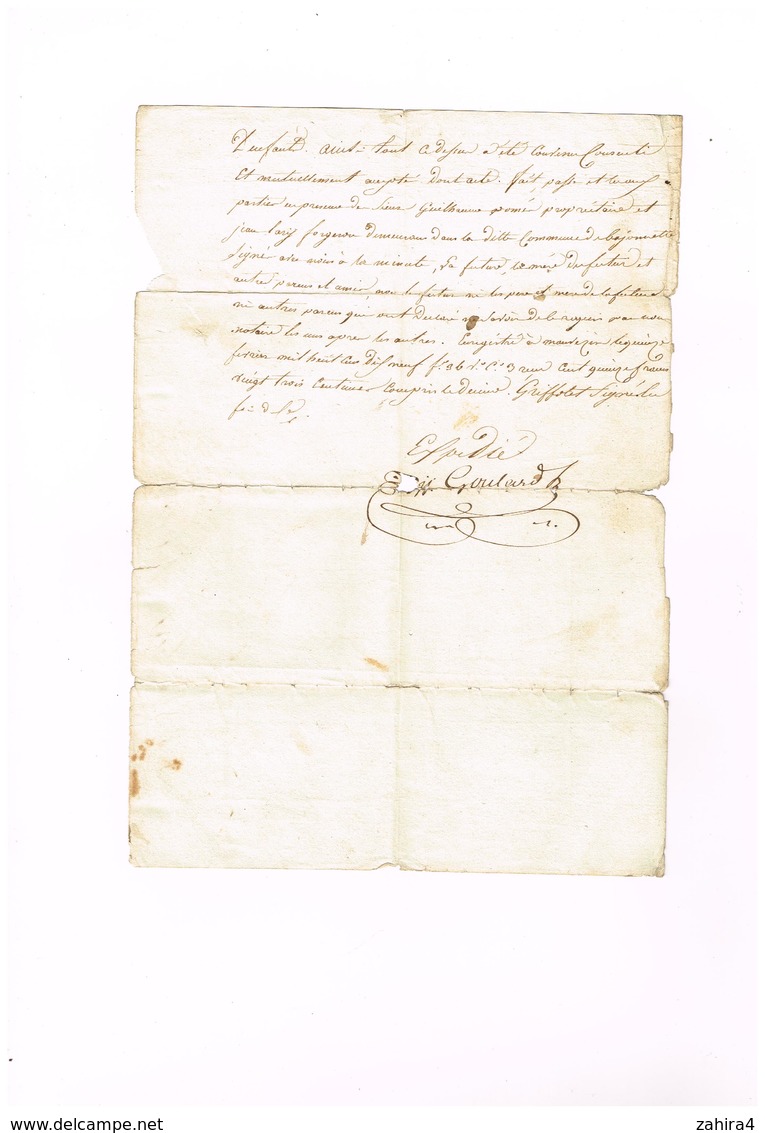 D'enfants. ainsi tout ce dessus a été convenu Consenti
Et mutuellement accepté dont acte. fait, passé et lu aux
parties en presence de Sieurs Guilhaume pomé propriétaire et
jean forgeron demeurans dans la ditte Commune de bajonnette
Signé avec nous à la minute, la future, le mere du futur et
autres parens et amis, non le futur ni les pere et mere de la future
ni autres parens qui ont declaré ne savoir de ce requis par nous
notaire les uns apres les autres. Enregistré à mauvezin le quinze
fevrier mil huit cens dix neuf f.o 36 r.o C.e 3 reçu cent quinze francs
vingt trois centimes compris le decime. Griffolet Signé.
Expedié
Goulard
www.delcampe.net
zahira4